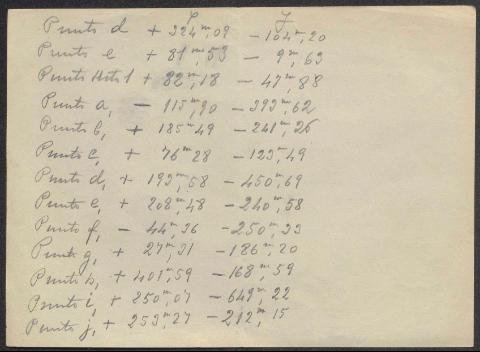 Punto d + 224,m09 - 104m,20
Punto e + 81m,53 - 9m,63
Punto + 82m,18 - 47m,88
Punto a - 115m,90 - 393m,62
Punto b, + 185m49 - 241m,26
Punto c, + 76m28 - 123m,49
Punto d, + 193m,58 - 450m,69
Punto e, + 208m,48 - 240m,58
Punto f, - 44m,36 - 250m,33
Punto g, + 27m,31 - 186m,20
Punto h, + 401m,59 - 168m,59
Punto i, + 250m,07 - 649m,22
Punto j, + 253m,27 - 212m,15